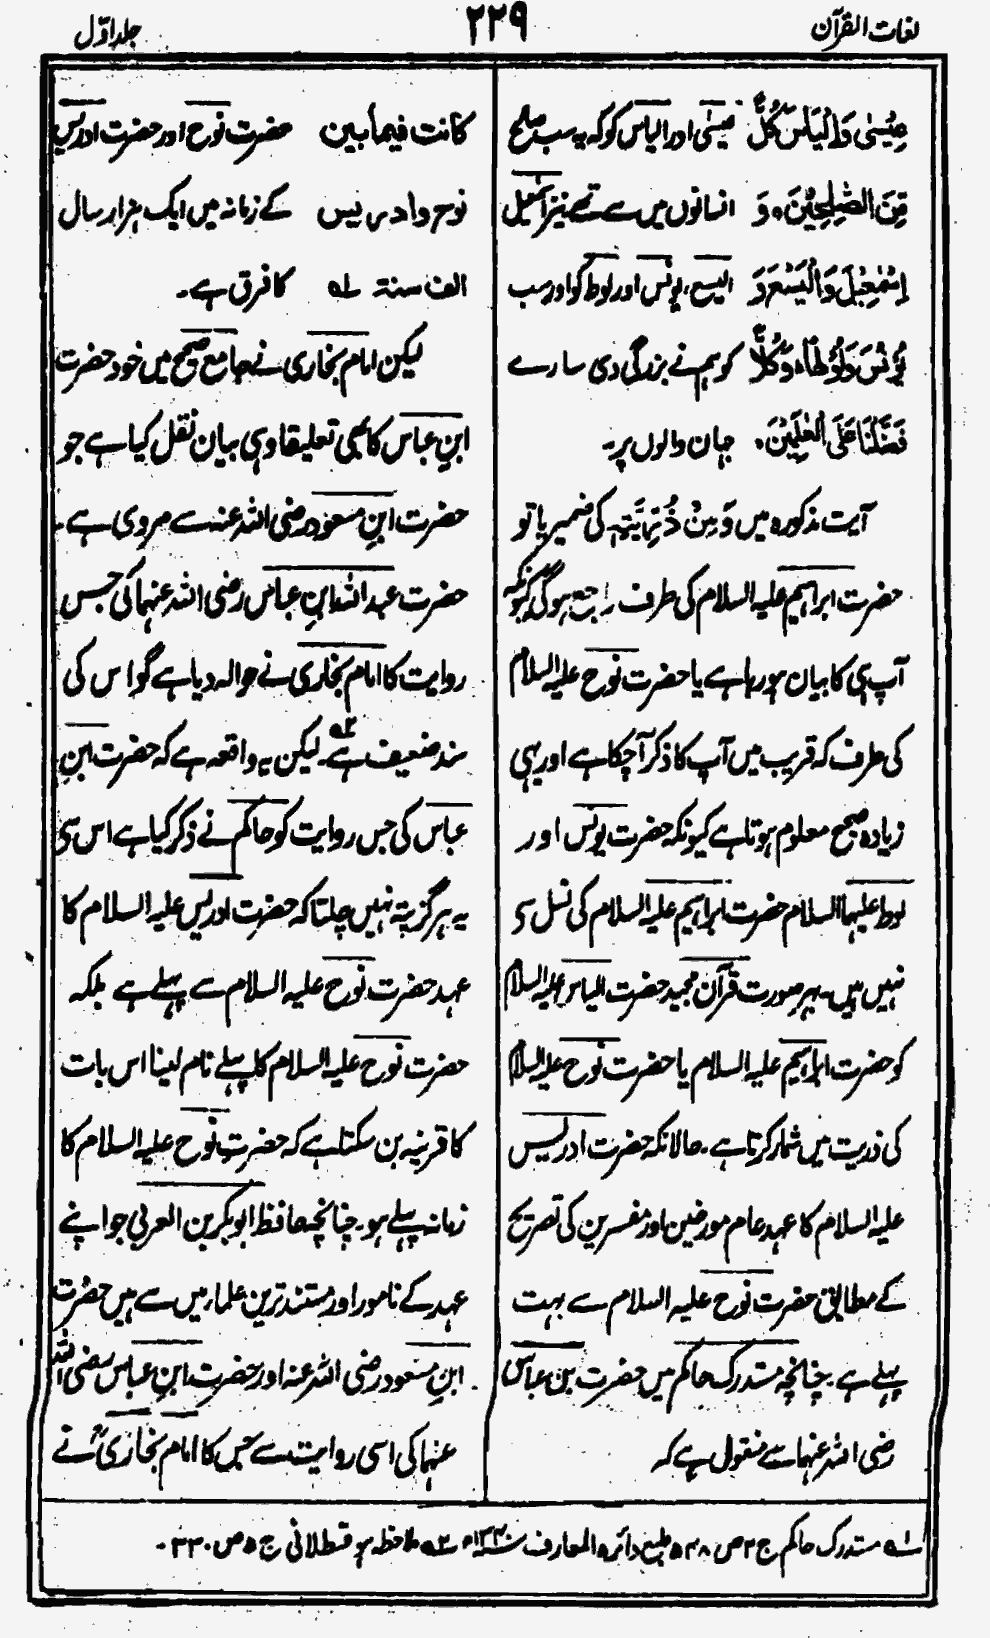 لغات القرآن
۲۲۹
جلد اوّل
عِیْسٰی وَاِلْیَاسَ کُلٌّ عیسٰی اور الیاس کو کہ یہ سب صلح
مِّنَ الصّٰلِحِیْنَ ہ وَ انسانوں میں سے تھے نیز اسمٰعیل
اِسْمٰعِیْلَ وَالْیَسَعَ وَ الیسع، یونس اور لوط کو اور سب
یُوْنُسَ وَلُوْطًا ؕ وَکُلًّا کو ہم نے بزرگی دی سارے
فَضَّلْنَا عَلَی الْعٰلَمِیْنَ ہ جہان والوں پر۔
آیت مذکورہ میں وَمِنْ ذُرِّیَّتِہٖ کی ضمیر یا تو
حضرت ابراہیم علیہ السلام کی طرف راجع ہوگی کیونکہ
آپ ہی کا بیان ہو رہا ہے یا حضرت نوح علیہ السلام
کی طرف کہ قریب میں آپ کا ذکر آچکا ہے اور یہی
زیادہ صحیح معلوم ہوتا ہے کیونکہ حضرت یونس اور
لوط علیہما السلام حضرت ابراہیم علیہ السلام کی نسل سی
نہیں ہیں۔ بہر صورت قرآن مجید حضرت الیاس علیہ السلام
کو حضرت ابراہیم علیہ السلام یا حضرت نوح علیہ السلام
کی ذریت میں شمار کرتا ہے۔ حالانکہ حضرت ادریس
علیہ السلام کا عہد عام مورخین اور مفسرین کی تصریح
کے مطابق حضرت نوح علیہ السلام سے بہت
پہلے ہے۔ چنانچہ مستدرک حاکم میں حضرت بن عباس
رضی اللہ عنہما سے منقول ہے کہ
کانت فیما بین حضرت نوح اور حضرت ادریس
نوح و ادریس کے زمانہ میں ایک ہزار سال
الف سنۃ ؁۱ کا فرق ہے۔
لیکن امام بخاری نے جامع صحیح میں خود حضرت
ابن عباس کا بھی تعلیقا وہی بیان نقل کیا ہے جو
حضرت ابن مسعود رضی اللہ عنہ سے مروی ہے۔
حضرت عبد اللہ ابن عباس رضی اللہ عنہما کی جس
روایت کا امام بخاری نے حوالہ دیا ہے گو اس کی
سند ضعیف ہے۔ ؁۲ لیکن یہ واقعہ ہے کہ حضرت ابن
عباس کی جس روایت کو حاکم نے ذکر کیا ہے اس سی
یہ ہرگز پتہ نہیں چلتا کہ حضرت ادریس علیہ السلام کا
عہد حضرت نوح علیہ السلام سے پہلے ہے بلکہ
حضرت نوح علیہ السلام کا پہلے نام لینا اس بات
کا قرینہ بن سکتا ہے کہ حضرت نوح علیہ السلام کا
زمانہ پہلے ہو۔ چنانچہ حافظ ابوبکر بن العربی جو اپنے
عہد کے نامور اور مستند ترین علماء میں سے ہیں حضرت
ابن مسعود رضی اللہ عنہ اور حضرت ابن عباس رضی اللہ
عنہما کی اسی روایت سے جس کا امام بخاریؒ نے
؁۱ مستدرک حاکم ج ۲ ص ۵۴۸ طبع دائرہ المعارف ۱۳۴۰ء ؁۲ ملاحظہ ہو قسطلانی ج ۵ ص ۳۳۰۔